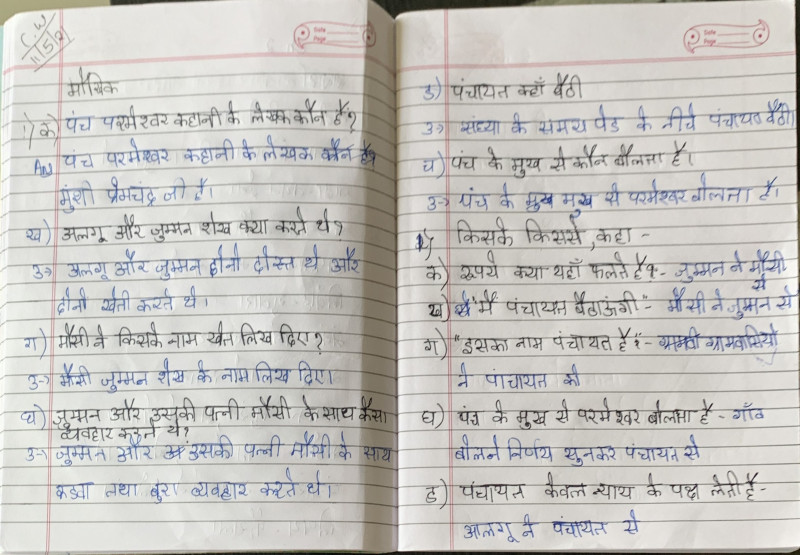 C.W
11/5/2
Date
Page
मौखिक
1) क) पंच परमेश्वर कहानी के लेखक कौन हैं?
Ans पंच परमेश्वर कहानी के लेखक
मुंशी प्रेमचंद्र जी है।
ख) अलगू और जुम्मन शेख क्या करते थे?
उ→ अलगू और जुम्मन दोनो दोस्त थे और
दोनो खेती करते थे।
ग) मौसी ने किसके नाम खेत लिख दिए?
उ→ मौसी जुम्मन शेख के नाम लिख दिए।
घ) जुम्मन और उसकी पत्नी मौसी के साथ कैसा
व्यवहार करते थे?
उ→ जुम्मन और उसकी पत्नी मौसी के साथ
कड़वा तथा बुरा व्यवहार करते थे।
Date
Page
ड) पंचायत कहाँ बैठी
उ→ संध्या के समय पेड के नीचे पंचायत बैठी।
च) पंच के मुख से कौन बोलता है।
उ→ पंच के मुख से परमेश्वर बोलता है।
किसके किससे, कहा -
क) रूपये क्या यहाँ फलते है? - जुम्मन ने मौसी
से
ख) "मैं पंचायत बैठाऊंगी" - मौसी ने जुम्मन से
ग) "इसका नाम पंचायत है?" - ग्रामवासियो
ने पांचायत को
घ) पंच के मुख से परमेश्वर बोलता है - गाँव
बोलने निर्णय सुनकर पंचायत से
ड) पंचायत केवल न्याय के पक्ष लेती है -
आलगू ने पंचायत से